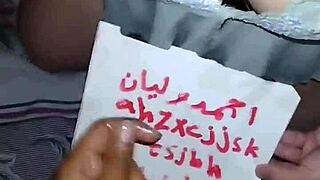 احمد وليان
ahzxcjjsk
tsjbh